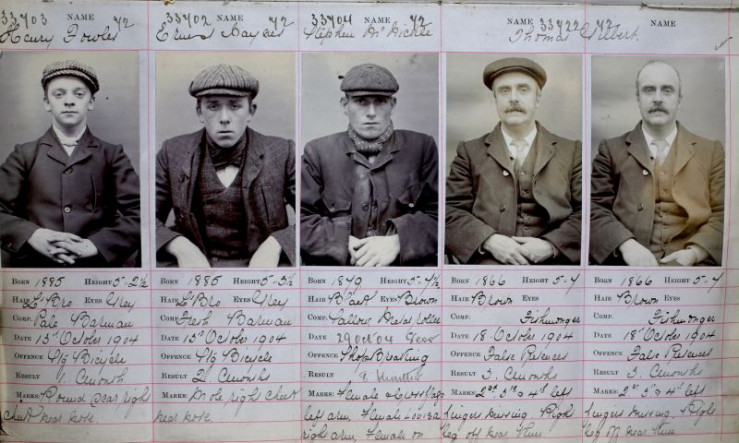 33703 NAME 72 33702 NAME 72 33704 NAME 72 NAME 33722 72 NAME
Henry Fowles Ernest Haynes Stephen Thomas Gilbert.
BORN 1885 HEIGHT 5-2½
HAIR L' Bro EYES Grey
COMP. Pale Barman
DATE 15th October 1904
OFFENCE Bicycle
RESULT 1.
MARKS: Round scar right
cheek near nose
BORN 1885 HEIGHT 5-3½
HAIR L' Bro EYES Grey
COMP. Fresh Barman
DATE 15th October 1904
OFFENCE Bicycle
RESULT 2.
MARKS: Mole right cheek
near nose
BORN 1879 HEIGHT 5-4½
HAIR EYES Brown
COMP. Sallow
DATE 29 Oct 04
OFFENCE Shop Breaking
RESULT
MARKS: Female
left arm, Female Louisa
right arm, Female on
BORN 1866 HEIGHT 5-7
HAIR Brown EYES
COMP. Fishmonger
DATE 18 October 1904
OFFENCE False Pretences
RESULT 3.
MARKS: 2nd 3rd & 4th left
fingers missing. Right
leg off near knee
BORN 1866 HEIGHT 5-7
HAIR Brown EYES
COMP. Fishmonger
DATE 18th October 1904
OFFENCE False Pretences
RESULT 3.
MARKS: 2nd 3rd & 4th left
fingers missing. Right
leg off near knee